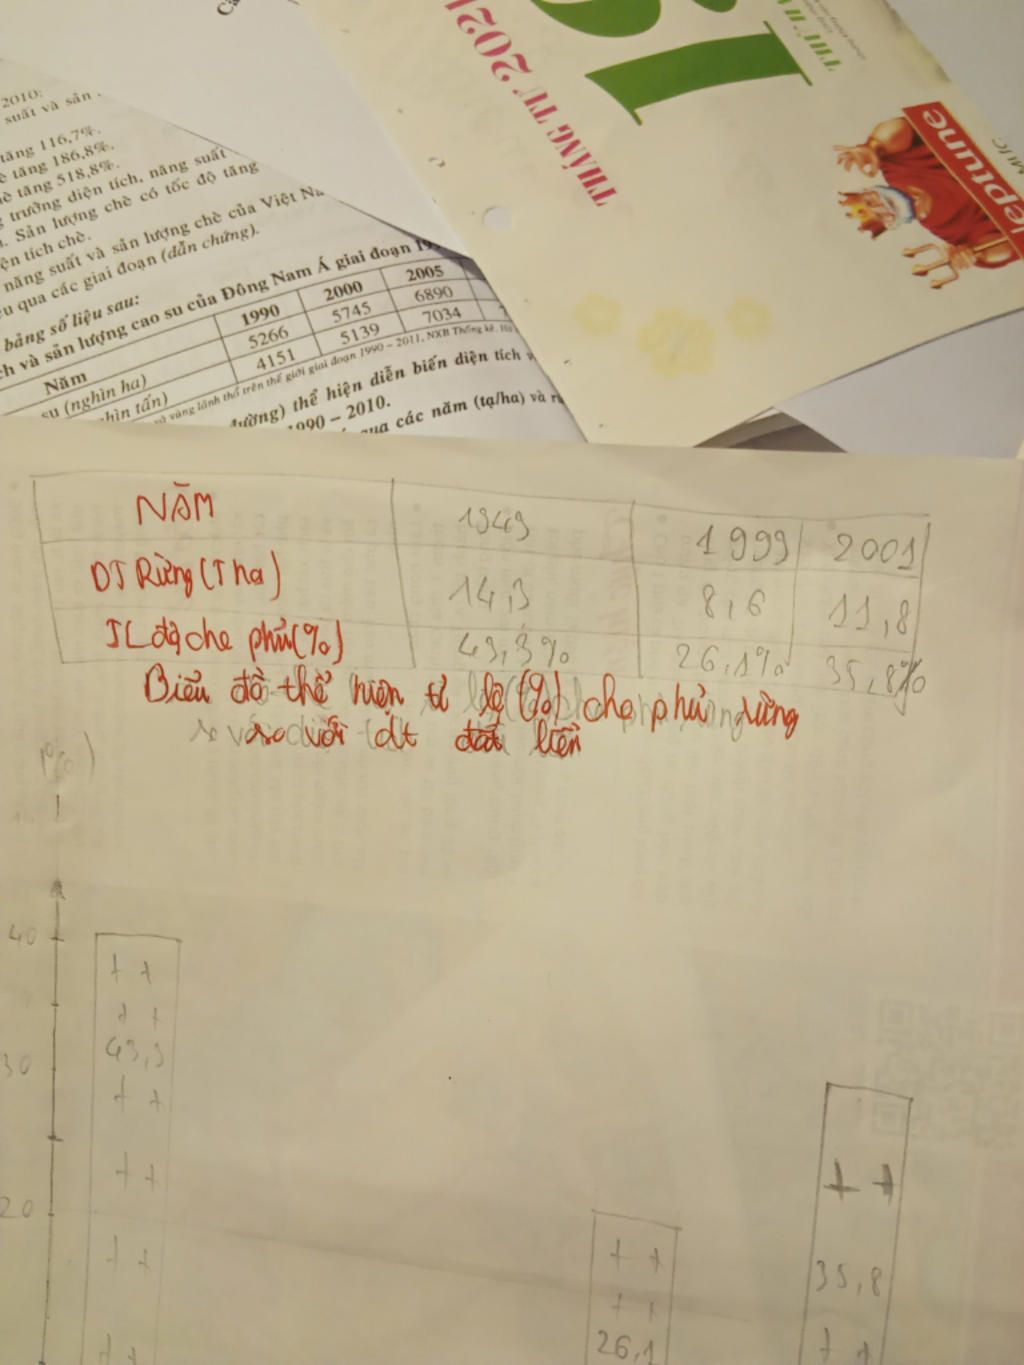 THÁNG TƯ 2021
THỨ
neptune
2010:
suất và sản
tăng 116,7%.
è tăng 186,8%.
nè tăng 518,8%.
trưởng diện tích, năng suất
Sản lượng chè có tốc độ tăng
ện tích chè.
năng suất và sản lượng chè của Việt Na
qua các giai đoạn (dẫn chứng).
bảng số liệu sau:
ch và sản lượng cao su của Đông Nam Á giai đoạn 19
Năm 1990 2000 2005
su (nghìn ha) 5266 5745 6890
nghìn tấn) 4151 5139 7034
và vùng lãnh thổ trên thế giới giai đoạn 1990 – 2011, NXB Thống kê, Hà
đường) thể hiện diễn biến diện tích
1990 – 2010.
qua các năm (tạ/ha) và
NĂM 1943 1999 2001
DT Rừng (Tha) 14,3 8,6 11,8
TL độ che phủ (%) 43,3% 26,1% 35,8%
Biểu đồ thể hiện tỉ lệ (%) che phủ rừng
so với dt đất liền
(%)
40
43,3
30
20
35,8
26,1